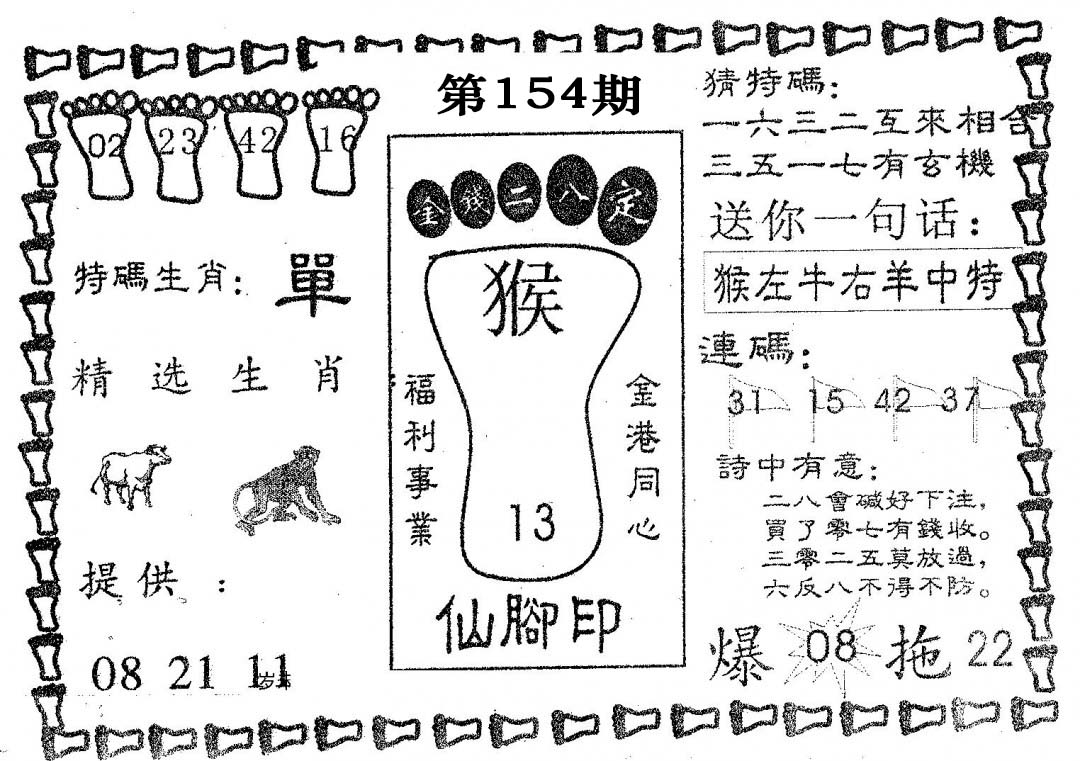 第154期
02 23 42 16
特碼生肖：單
精选生肖
提供：
08 21 11
金錢二八定
猴
福利事業
金港同心
13
仙腳印
猜特碼：
一六三二互來相合
三五一七有玄機
送你一句话：
猴左牛右羊中特
連碼：
31 15 42 37
詩中有意：
二八會碱好下注，
買了零七有錢收。
三零二五莫放過，
六反八不得不防。
爆 08 拖 22